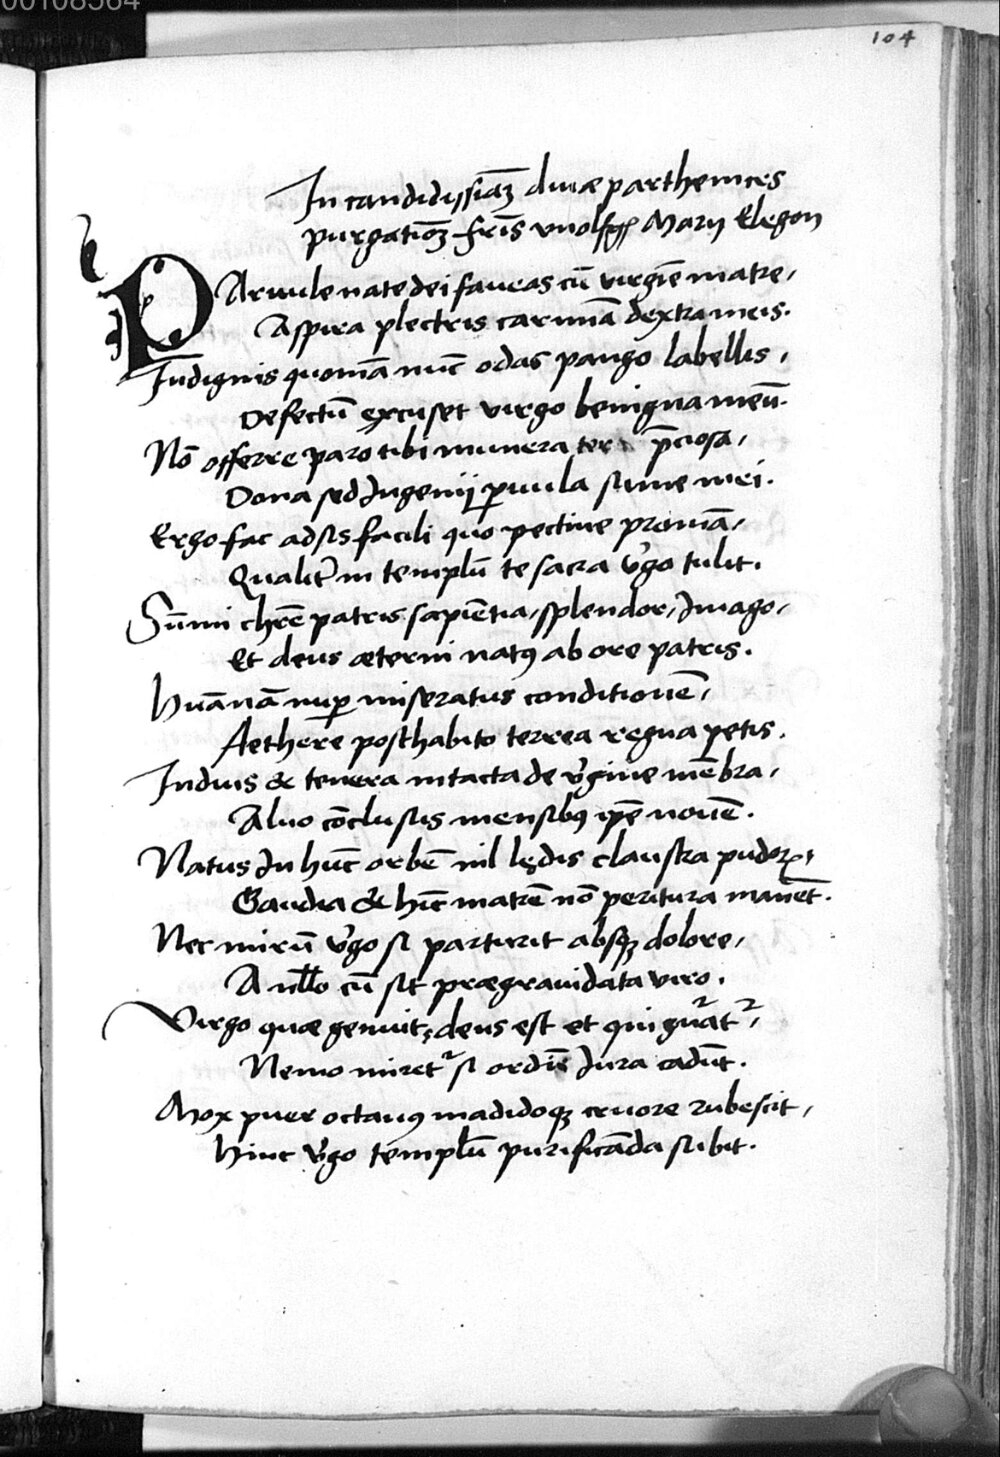 00108564
104
In candidissiāꝫ diuæ parthenices
purgatioꝫ fr̄is vuolfgg Marij Elegon
PAruule nate dei faueas cū virgīe matre,
Aspira plectris carminā dextra meis.
Indignis quoniā nūc odas pango labellis,
Defectū excuset virgo benigna meū.
Nō offerre paro tibi munera ter p̄ciosa,
Dona sed Ingenij ꝑuula sume mei.
Ergo fac adsis facili quo pectine promā,
Qualit̄ in templū te sacra v̄go tulit.
Sūmi chr̄e patris sapiētia, splendor, Imago,
Et deus æterni natꝰ ab ore patris.
Hūanā nuꝑ miseratus conditionē,
Aethere posthabito terrea regna petis.
Induis & tenera intacta de v̄gine mēbra,
Aluo cōclusus mensibꝰ ip̄e nouē.
Natus In hūc orbē nil lędis claustra pudorꝭ,
Gaudia & hīc matrē nō peritura manēt.
Nec mirū v̄go si parturit absqꝫ dolore,
A nllo cū sit prægrauidata viro.
Virgo quæ genuit, deus est et qui gn̄atʳ,
Nemo miretʳ si ordīe Iura cadūt.
Mox puer octauꝰ madidoqꝫ cruore rubescit,
Hinc v̄go templū purificāda subit.